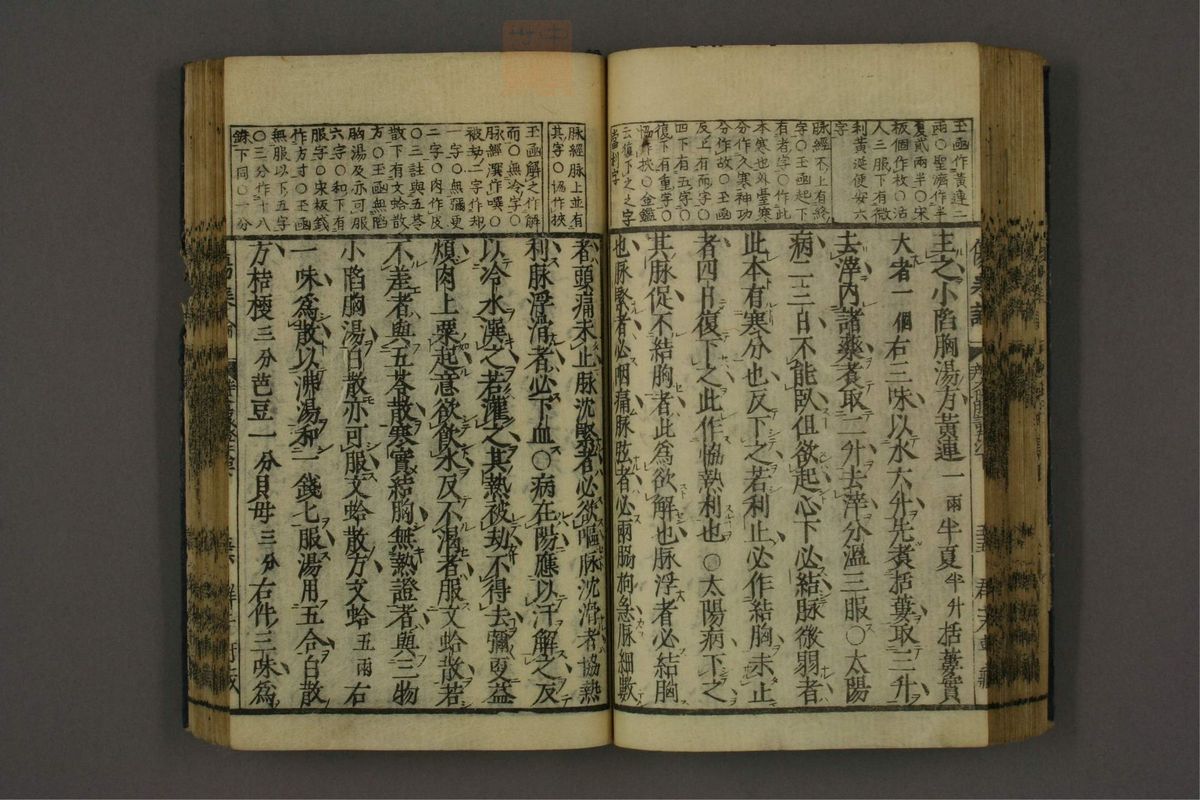 玉函作黃連二
兩○聖濟作半
夏貳兩半○宋
板個作枚○活
人三服下有微
利黃涎便安六
字
脉經不上有終
字○玉函起下
有者字○作此
本寒也外臺寒
分作久寒神功
分作故○玉函
反上有而字○
四下有五字○
復下有重字○
協作挾○金鑑
云復下之之字
當刪字
主之小陷胸湯方黃連一兩半夏半升括蔞實
大者一個右三味以水六升先煮括蔞取三升
去滓內諸藥煮取二升去滓分溫三服○太陽
病二三日不能臥但欲起心下必結脉微弱者
此本有寒分也反下之若利止必作結胸未止
者四日復下之此作協熱利也○太陽病下之
其脉促不結胸者此爲欲解也脉浮者必結胸
也脉緊者必咽痛脉弦者必兩脇拘急脉細數
脉經脉上並有
其字○協作挾
玉函解之作解
而○無冷字○
脉經潠作噀○
被劫二字作却
一字○無彌更
二字○肉作皮
○三註與五苓
散下有文蛤散
方○玉函無陷
胸湯及亦可服
六字○和下有
服字○宋板錢
作方寸○玉函
無服以下五字
○三分作十八
銖下同○一分
者頭痛未止脉沈緊者必欲嘔脉沈滑者協熱
利脉浮滑者必下血○病在陽應以汗解之反
以冷水潠之若灌之其熱被劫不得去彌更益
煩肉上粟起意欲飲水反不渴者服文蛤散若
不差者與五苓散寒實結胸無熱證者與三物
小陷胸湯白散亦可服文蛤散方文蛤五兩右
一味爲散以沸湯和一錢匕服湯用五合白散
方桔梗三分芭豆一分貝母三分右件三味爲